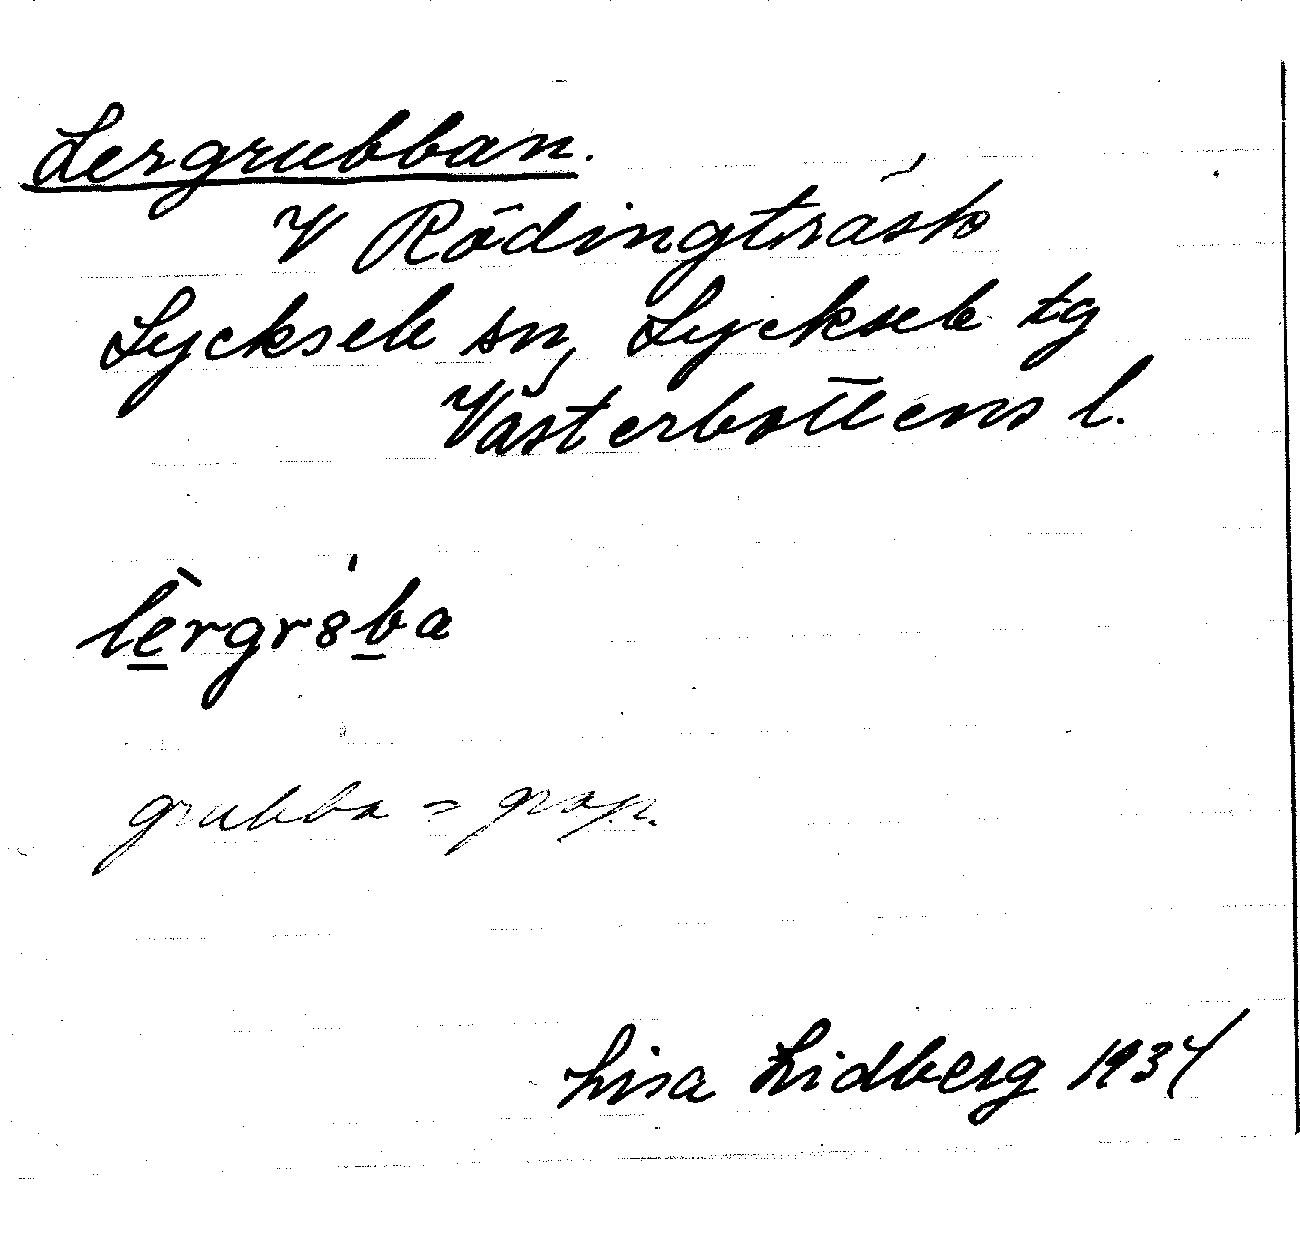 Lergrubban.
V Rödingträsk
Lycksele sn, Lycksele tg
Västerbottens l.
lèrgr8ba
grubba = grop.
Lisa Lidberg 1934